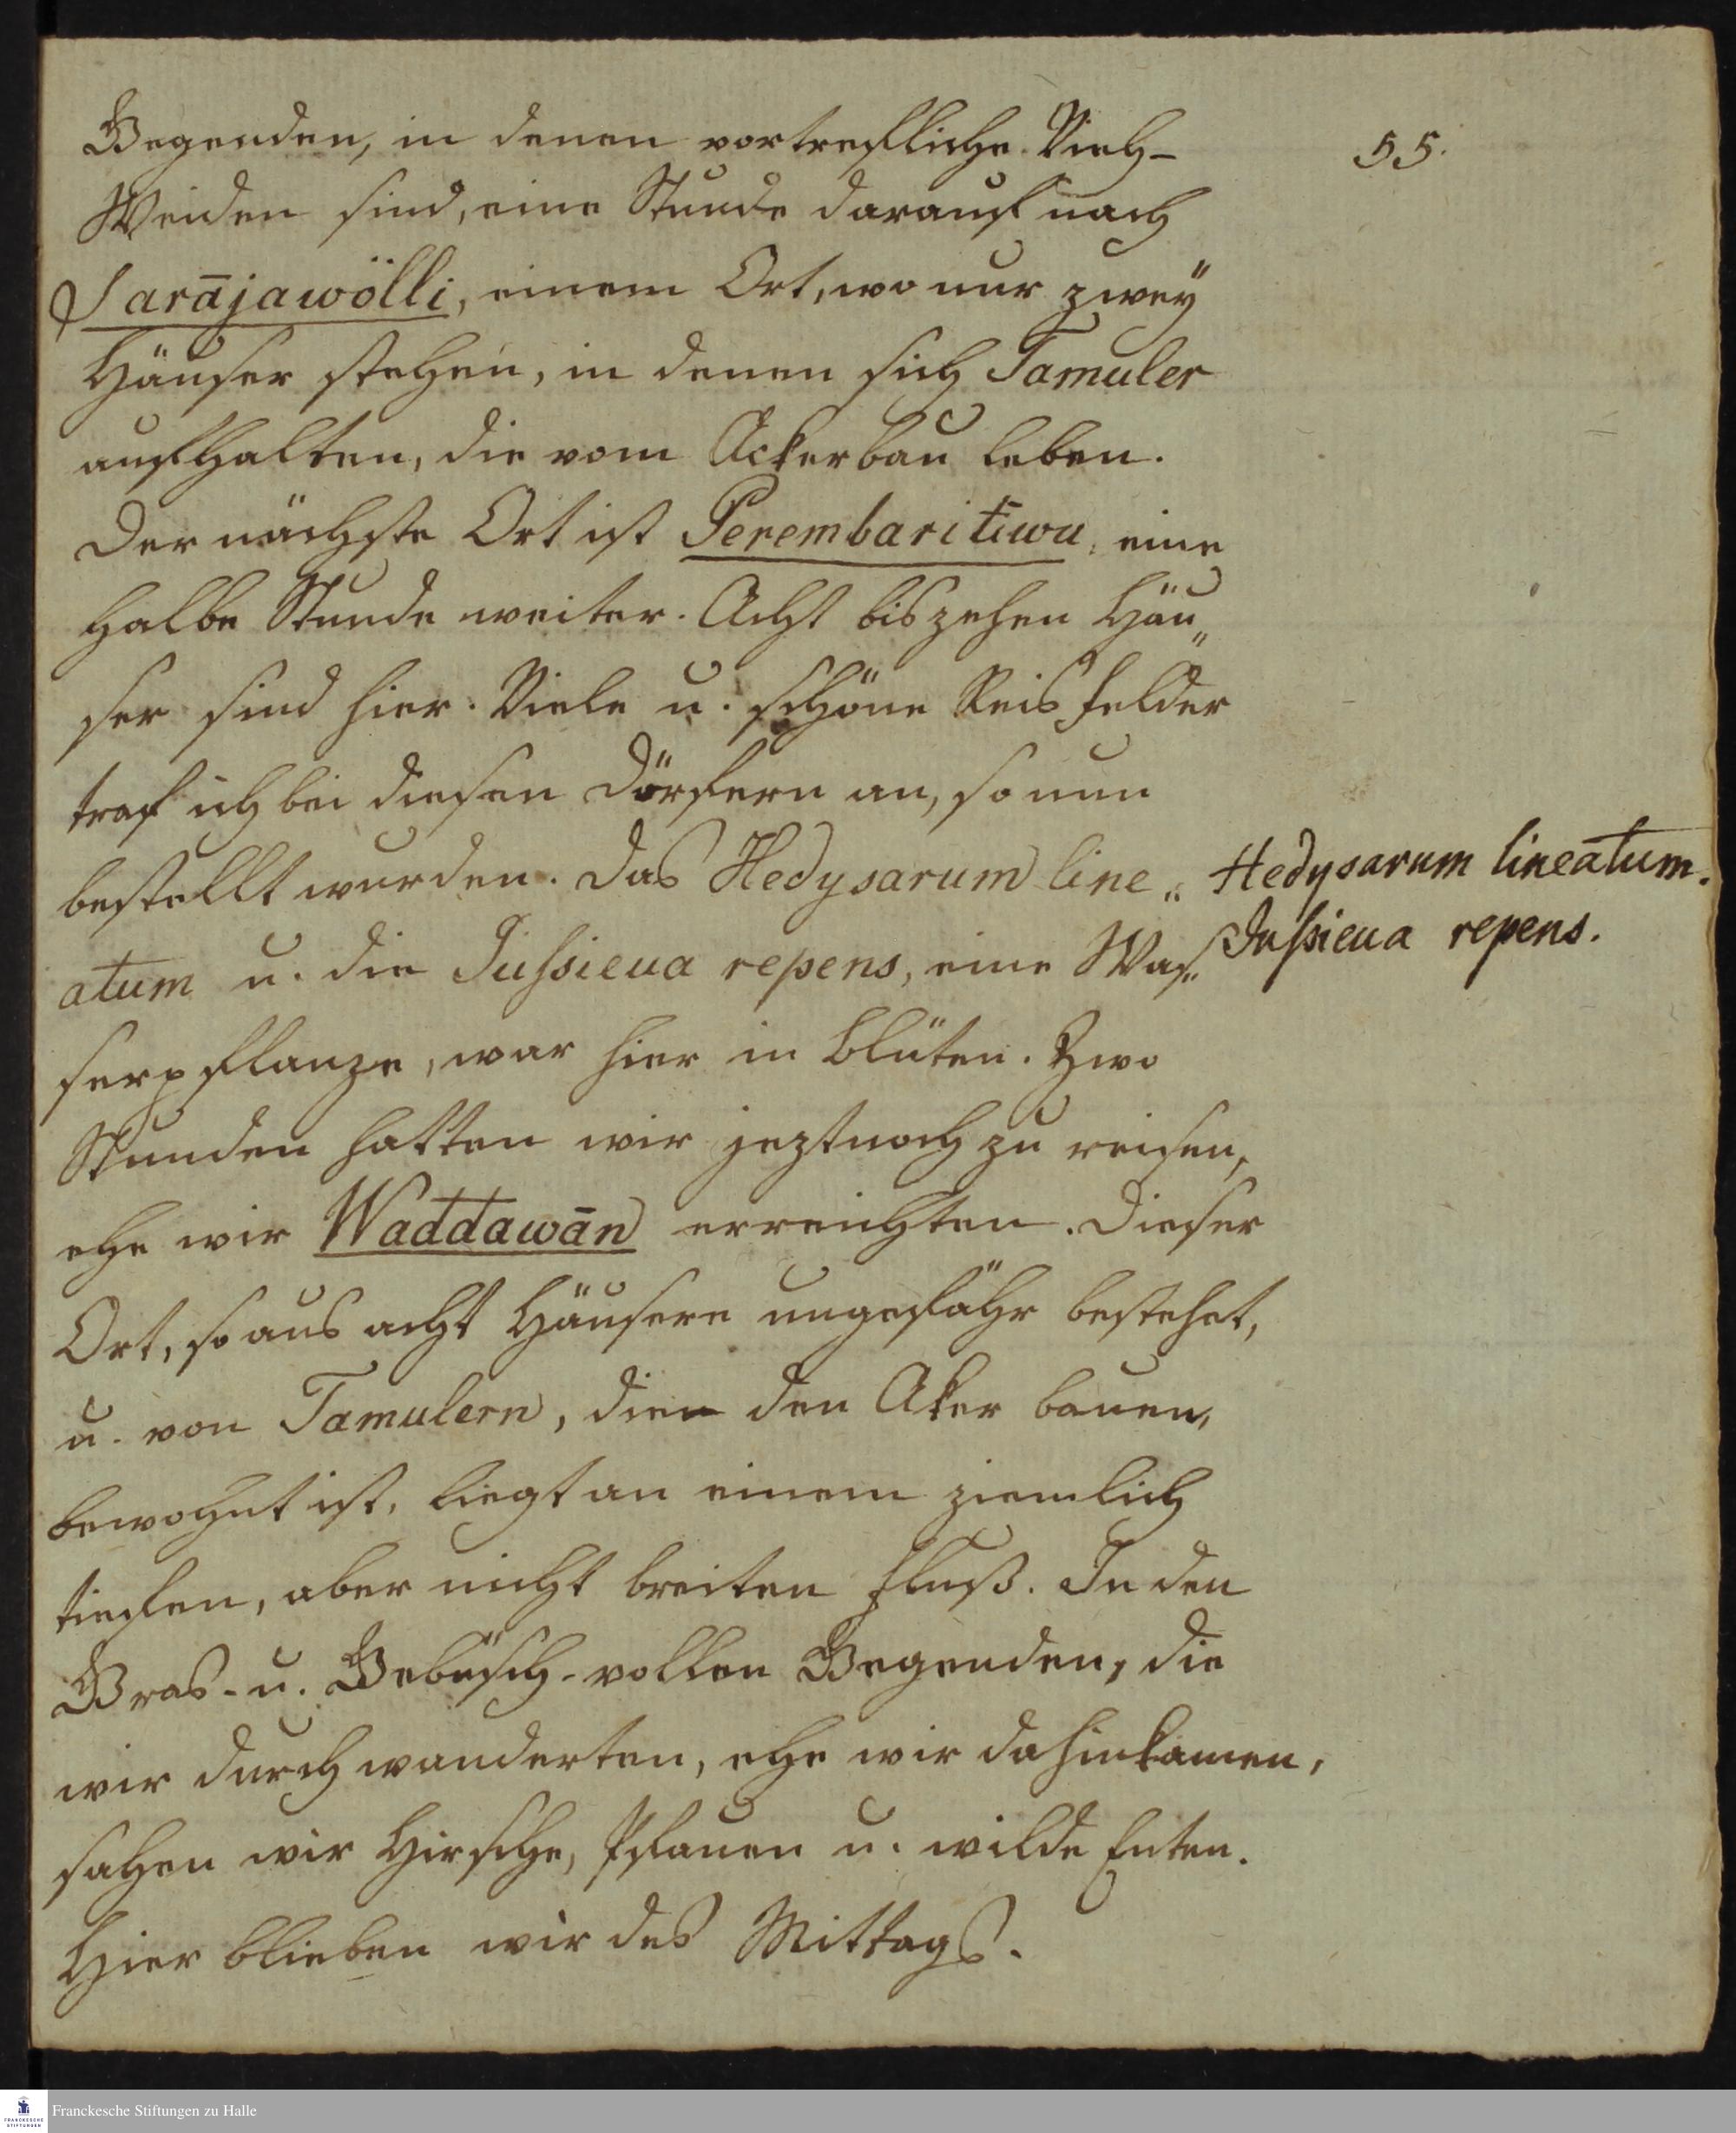 55.
Gegenden, in denen vortrefliche Vieh-
Weiden sind, eine Stunde darauf nach
Sarājawölli, einem Ort, wo nur zwey
Häuser stehen, in denen sich Tamuler
aufhalten, die vom Ackerbau leben.
Der nächste Ort ist Perembaritīwu, eine
halbe Stunde weiter. Acht bis zehen Häu„
ser sind hier. Viele u. schöne Reisfelder
traf ich bei diesen Dörfern an, so nun
bestellt wurden. Das Hedysarum line„
atum u. die Jussieua repens, eine Was„
serpflanze, war hier in Blüten. Zwo
Stunden hatten wir jezt noch zu reisen,
ehe wir Waddawān erreichten. Dieser
Ort, so aus acht Häusern ungefähr bestehet,
u. von Tamulern, die den Aker bauen,
bewohnt ist, liegt an einem ziemlich
tiefen, aber nicht breiten Fluß. In den
Gras- u. Gebüsch-vollen Gegenden, die
wir durchwanderten, ehe wir dahinkamen,
sahen wir Hirsche, Pfauen u. wilde Enten.
Hier blieben wir des Mittags.
Hedysarum lineatum.
Jussieua repens.
Franckesche Stiftungen zu Halle
FRANCKESCHE
STIFTUNGEN